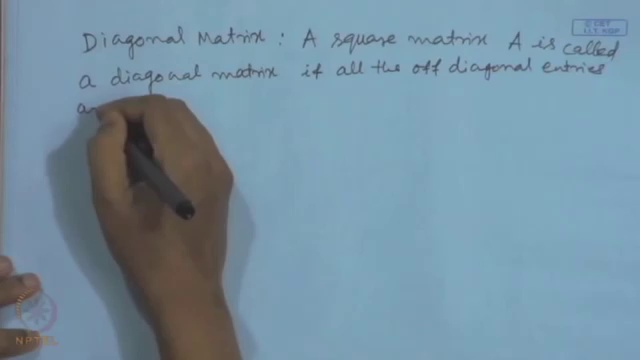 © CET
I.I.T. KGP
Diagonal Matrix : A square matrix A is called
a diagonal matrix if all the off diagonal entries
NPTEL